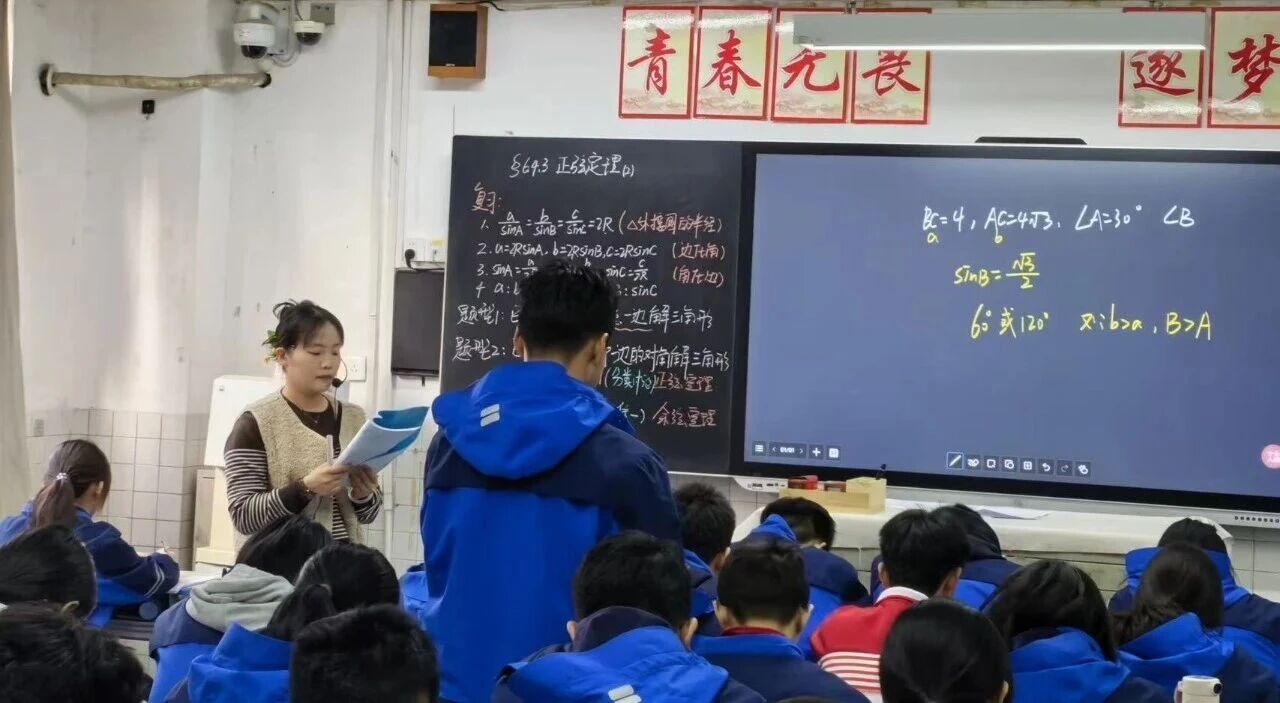 青春无畏
逐梦
§6.4.3 正弦定理(2)
复习:
1. a/sinA = b/sinB = c/sinC = 2R (△外接圆的半径)
2. a=2RsinA, b=2RsinB, c=2RsinC (边化角)
3. sinA= sinC=c/2R (角化边)
4. a: : sinC
题型1: 一边解三角形
题型2: 一边的对角解三角形
(分类讨论) 正弦定理
余弦定理
BC=4, AC=4√3, ∠A=30° ∠B
a b
sinB=√3/2
60°或120° 又∵b>a, B>A
01/01